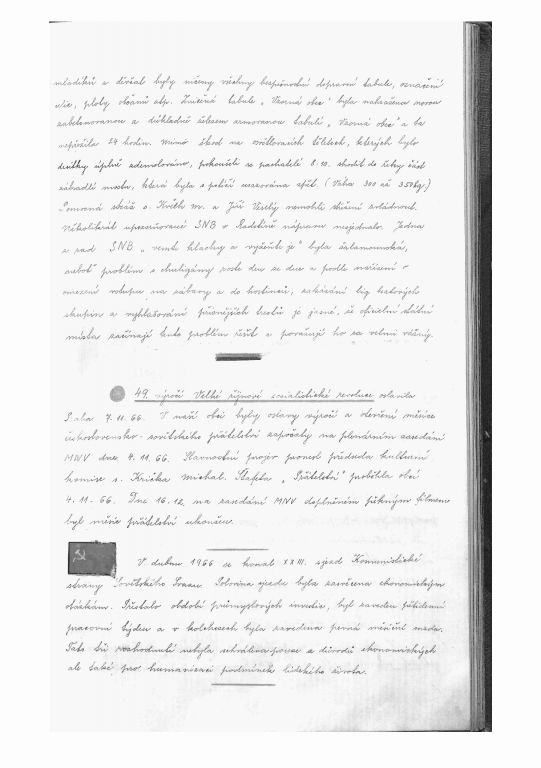 mladíků a děvčat byly ničeny všechny bezpečnostní dopravní tabule, označení
ulic, ploty občanů atp. Zničená tabule „ Vzorná obec" byla nahrazena novou
zabetonovanou a důkladně železem armovanou tabulí „ Vzorná obec" a ta
nepřežila 24 hodin. Mimo škod na osvětlovacích tělesech, kterých bylo
desítky úplně zdemolováno, pokoušeli se pachatelé 8.10. shodit do řeky část
zábradlí mostu, která byla s potíží usazována zpět. (Váha 300 až 350 kg.)
Pomocná stráž s. Květ m. a Jiří Veselý nemohli tkání zvládnout.
Několikeré upozorňovací SNB v Radotíně nápravu nezjednalo. Jedna
z rad SNB „ vemte klacky a vyžeňte je" byla šalamounská,
neboť problém s chuligány roste den ze dne a podle nařízení o
omezení vstupu na zábavy a do hostinců, zakázání big beatových
skupin a vyhlašování přísnějších trestů je jasné, že oficielní státní
místa začínají tento problém řešit a považují ho za velmi vážný.
49. výročí Velké říjnové socialistické revoluce oslavila
Praha 7.11.66. V naší obci byly oslavy výročí a otevření měsíce
československo-sovětského přátelství započaty na plenárním zasedání
MNV dne 4.11.66. Slavnostní projev pronesl předseda kulturní
komise s. Krička Michal. Štafeta „ Přátelství" proběhla obcí
4.11.66. Dne 16.12. na zasedání MNV doplněném pěkným filmem
byl měsíc přátelství ukončen.
V dubnu 1966 se konal XXIII. sjezd Komunistické
strany Sovětského Svazu. Polovina sjezdu byla zasvěcena ekonomickým
otázkám. Přestalo období průmyslových investic, byl zaveden pětidenní
pracovní týden a v kolchozech byla zavedena pevná měsíční mzda.
Tato tři rozhodnutí nebyla schválena pouze z důvodů ekonomických
ale také pro humanizaci podmínek lidského života.